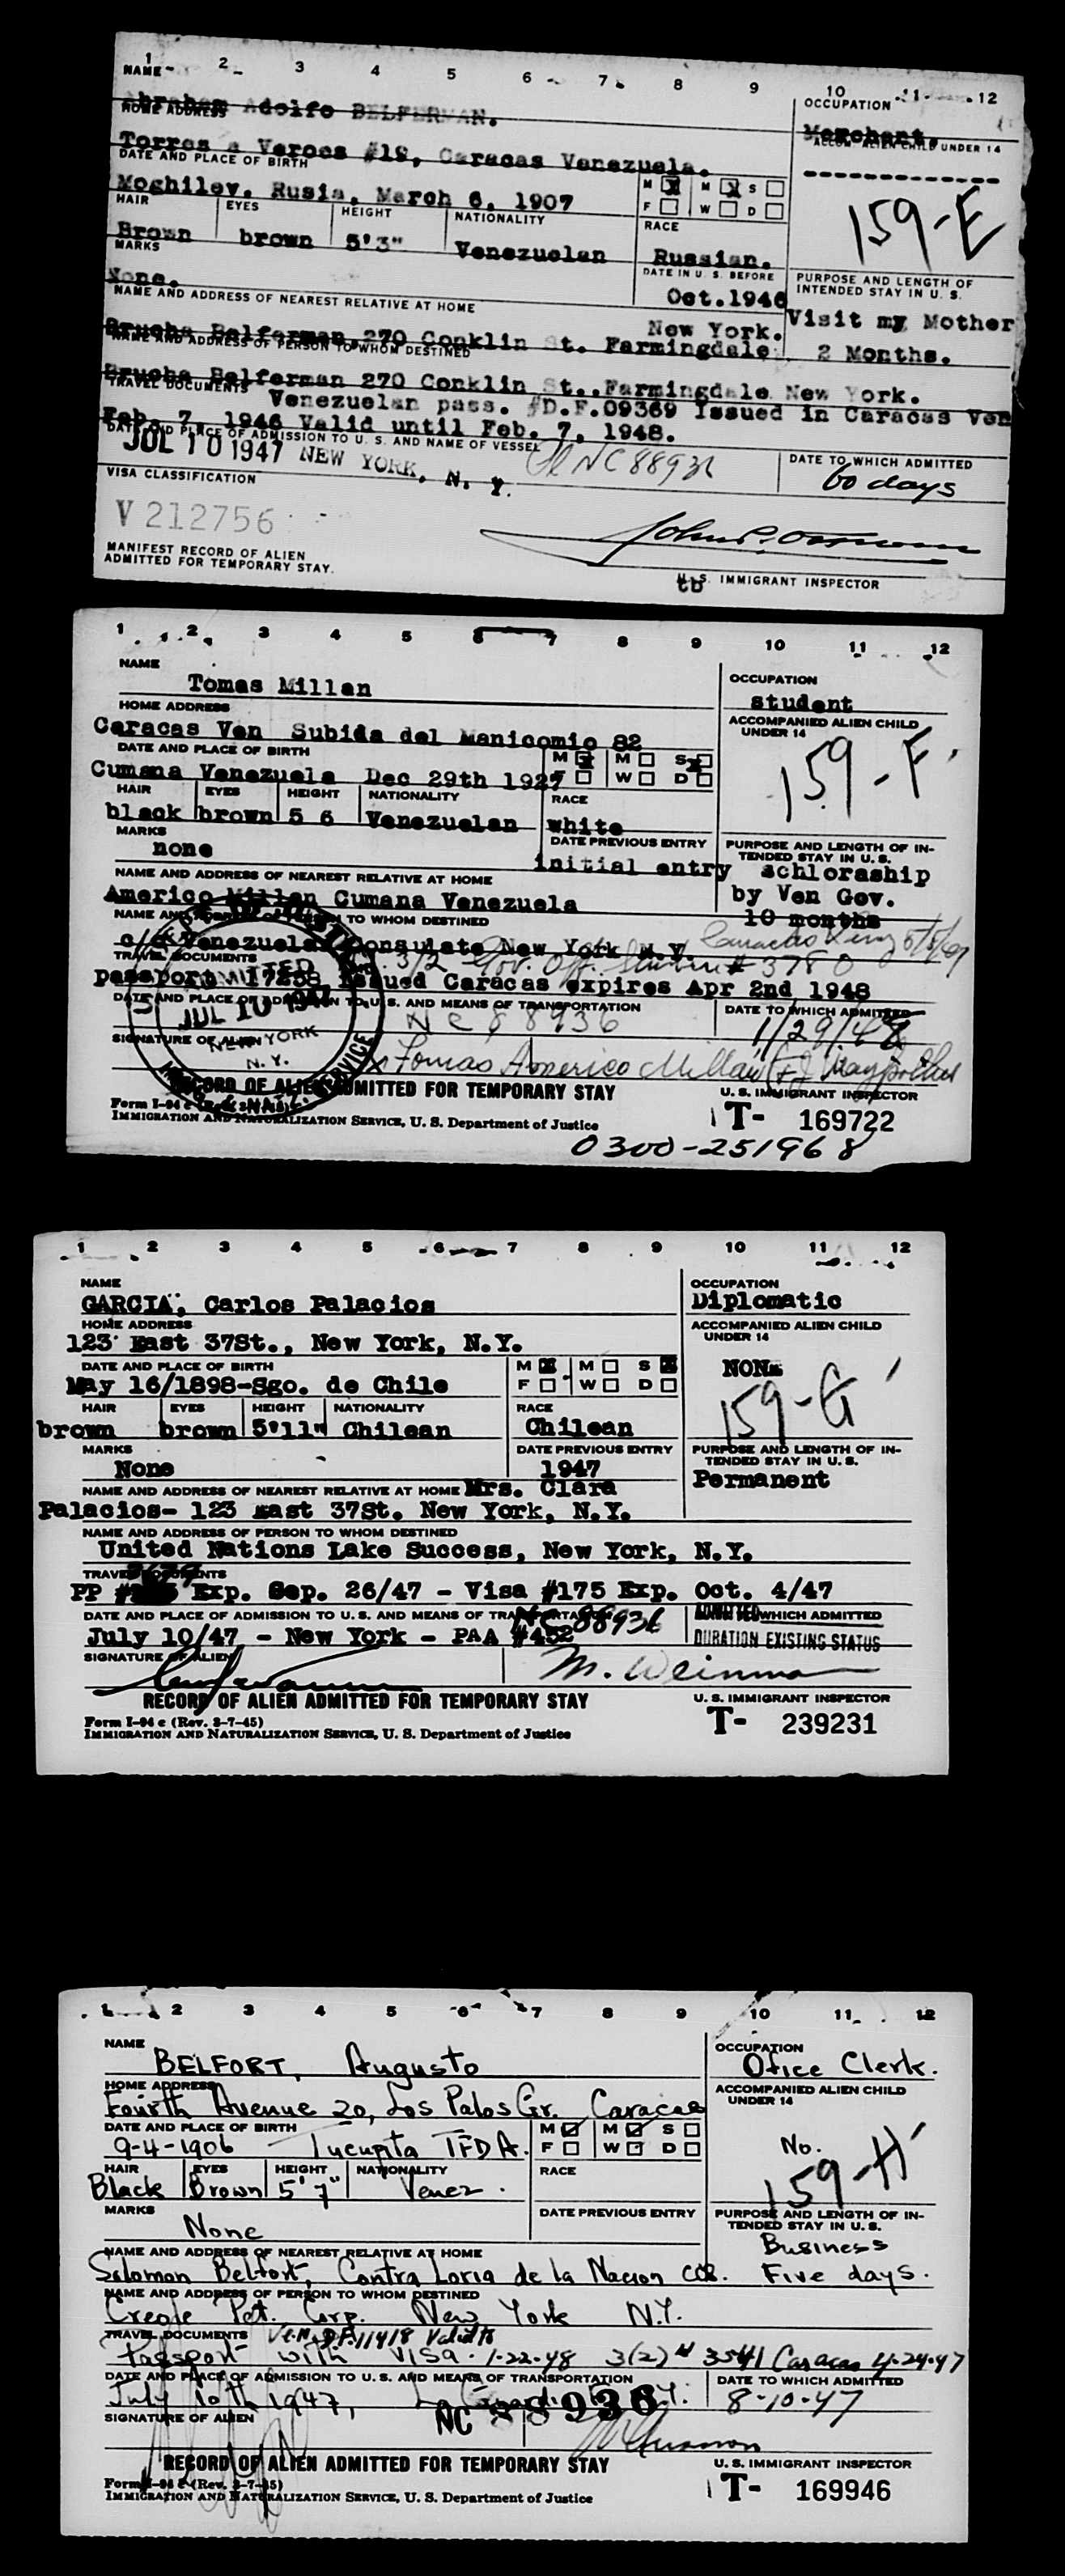 1 2 3 4 5 6 7 8 9 10 11 12
NAME
OCCUPATION
Abraham Adolfo BELFERMAN.
Merchant.
HOME ADDRESS
ACCOM. ALIEN CHILD UNDER 14
Torres a Veroes #18, Caracas Venezuela.
DATE AND PLACE OF BIRTH
M X M X S
Moghilev, Rusia, March 6, 1907
F W D
159-E
HAIR EYES HEIGHT NATIONALITY RACE
Brown brown 5'3" Venezuelan Russian.
MARKS
DATE IN U. S. BEFORE
PURPOSE AND LENGTH OF INTENDED STAY IN U. S.
None. Oct.1946
NAME AND ADDRESS OF NEAREST RELATIVE AT HOME
New York. Visit my Mother
Brucha Belferman,270 Conklin St. Farmingdale, 2 Months.
NAME AND ADDRESS OF PERSON TO WHOM DESTINED
Brucha Belferman 270 Conklin St.,Farmingdale New York.
TRAVEL DOCUMENTS
Venezuelan pass. #D.F.09369 Issued in Caracas Ven
Feb. 7, 1946 Valid until Feb. 7, 1948.
DATE AND PLACE OF ADMISSION TO U. S. AND NAME OF VESSEL
DATE TO WHICH ADMITTED
JUL 10 1947 NEW YORK, N. Y. NC 88936
60 days
VISA CLASSIFICATION
V 212756
MANIFEST RECORD OF ALIEN
ADMITTED FOR TEMPORARY STAY.
U. S. IMMIGRANT INSPECTOR
tb
1 2 3 4 5 6 7 8 9 10 11 12
NAME
OCCUPATION
Tomas Millan
student
HOME ADDRESS
ACCOMPANIED ALIEN CHILD UNDER 14
Caracas Ven Subida del Manicomio 82
DATE AND PLACE OF BIRTH
M X M S X
Cumana Venezuela Dec 29th 1927
F W D
159-F
HAIR EYES HEIGHT NATIONALITY RACE
black brown 5 6 Venezuelan white
MARKS
DATE PREVIOUS ENTRY
PURPOSE AND LENGTH OF INTENDED STAY IN U. S.
none initial entry schloraship
NAME AND ADDRESS OF NEAREST RELATIVE AT HOME
by Ven Gov.
Americo Millan Cumana Venezuela 10 months
NAME AND ADDRESS OF PERSON TO WHOM DESTINED
c/o Venezuelan Consulate New York N.Y.
TRAVEL DOCUMENTS
3/2 # 3780
passport 17258, issued Caracas expires Apr 2nd 1948
DATE AND PLACE OF ADMISSION TO U. S. AND MEANS OF TRANSPORTATION
DATE TO WHICH ADMITTED
ADMITTED
JUL 10 1947
NEW YORK
N. Y.
NC 88936
1/29/48
SIGNATURE OF ALIEN
Tomas Americo Millan
RECORD OF ALIEN ADMITTED FOR TEMPORARY STAY
U. S. IMMIGRANT INSPECTOR
Form I-94 c
IMMIGRATION AND NATURALIZATION SERVICE, U. S. Department of Justice
1 T- 169722
0300-251968
1 2 3 4 5 6 7 8 9 10 11 12
NAME
OCCUPATION
GARCIA, Carlos Palacios
Diplomatic
HOME ADDRESS
ACCOMPANIED ALIEN CHILD UNDER 14
123 East 37St., New York, N.Y.
DATE AND PLACE OF BIRTH
M X M S X
NONE
May 16/1898-Sgo. de Chile
F W D
159-G
HAIR EYES HEIGHT NATIONALITY RACE
brown brown 5'11" Chilean Chilean
MARKS
DATE PREVIOUS ENTRY
PURPOSE AND LENGTH OF INTENDED STAY IN U. S.
None 1947 Permanent
NAME AND ADDRESS OF NEAREST RELATIVE AT HOME Mrs. Clara
Palacios- 123 East 37St. New York, N.Y.
NAME AND ADDRESS OF PERSON TO WHOM DESTINED
United Nations Lake Success, New York, N.Y.
TRAVEL DOCUMENTS
PP # Exp. Sep. 26/47 - Visa #175 Exp. Oct. 4/47
DATE AND PLACE OF ADMISSION TO U. S. AND MEANS OF TRANSPORTATION
ADMITTED WHICH ADMITTED
July 10/47 - New York - PAA #452 NC 88936
DURATION EXISTING STATUS
SIGNATURE OF ALIEN
M. Weinman
RECORD OF ALIEN ADMITTED FOR TEMPORARY STAY
U. S. IMMIGRANT INSPECTOR
Form I-94 c (Rev. 3-7-45)
IMMIGRATION AND NATURALIZATION SERVICE, U. S. Department of Justice
T- 239231
1 2 3 4 5 6 7 8 9 10 11 12
NAME
OCCUPATION
BELFORT, Augusto
Ofice Clerk.
HOME ADDRESS
ACCOMPANIED ALIEN CHILD UNDER 14
Fourth Avenue 20, Los Palos Gr. Caracas
DATE AND PLACE OF BIRTH
M M S
No.
9-4-1906 Tucupita TFDA.
F W D
159-H
HAIR EYES HEIGHT NATIONALITY RACE
Black Brown 5'7" Venez.
MARKS
DATE PREVIOUS ENTRY
PURPOSE AND LENGTH OF INTENDED STAY IN U. S.
None
Business
NAME AND ADDRESS OF NEAREST RELATIVE AT HOME
Salomon Belfort, Contra Loria de la Nacion CCS. Five days.
NAME AND ADDRESS OF PERSON TO WHOM DESTINED
Creole Pet. Corp. New York N.Y.
TRAVEL DOCUMENTS Ven. D.F. 11418 Valid to
Passport with Visa. 1-22-48 3(2) # 3541 Caracas 4-24-47
DATE AND PLACE OF ADMISSION TO U. S. AND MEANS OF TRANSPORTATION
DATE TO WHICH ADMITTED
July 10th 1947, NC 88936
8-10-47
SIGNATURE OF ALIEN
RECORD OF ALIEN ADMITTED FOR TEMPORARY STAY
U. S. IMMIGRANT INSPECTOR
Form I-94 c (Rev. 3-7-45)
IMMIGRATION AND NATURALIZATION SERVICE, U. S. Department of Justice
1 T- 169946